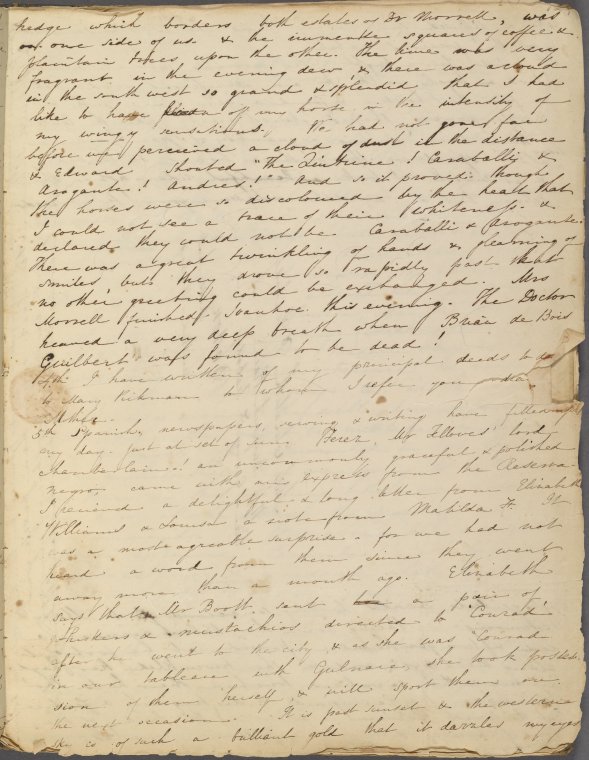 hedge which borders both estates as Dr Morrell, was
on one side of us & the immense squares of coffee &
plaintain trees upon the other. The lime was very
fragrant in the evening dew, & there was a cloud
in the south west so grand & splendid that I had
like to have off my horse in the intensity of
my wingy sensations. We had not gone far
before we perceived a cloud of dust in the distance
& Edward shouted "The Quitrine! Caraballi &
Arogante! Andres!" And so it proved: though
the horses were so discoloured by the heat that
I could not see a trace of their whiteness &
declared they could not be Caraballi & Arogante.
There was a great twinkling of hands & gleaming of
smiles, but they drove so rapidly past that
no other greeting could be exchanged. Mrs
Morrell finished Ivanhoe this evening. The Doctor
heaved a very deep breath when Brian de Bois
Guilbert was found to be dead!
4th I have written of my principal deeds to day
to Mary to whom I refer you
Mother.
5th Spanish, newspapers, sewing & writing have filled up
my day. Just at set of sun, Perez, Mr Fellowes' lord
chamberlain! an uncommonly graceful & polished
negro, came with an express from the Reserva
I received a delightful & long letter from Elizabeth
Williams & Louisa a note from Matilda F. It
was a most agreable surprise - for we had not
heard a word from them since they went
away more than a month ago. Elizabeth
says that Mr Boott sent a pair of
whiskers & mustachios directed to 'Conrad'
after he went to the city & as she was Conrad
in our tableau with Gulnare, she took posses-
sion of them herself, & will sport them on
the next occasion. It is past sunset & the western
sky is of such a brilliant gold that it dazzles my eyes